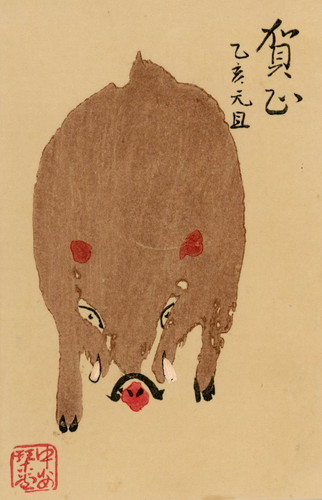 賀正
乙亥元旦